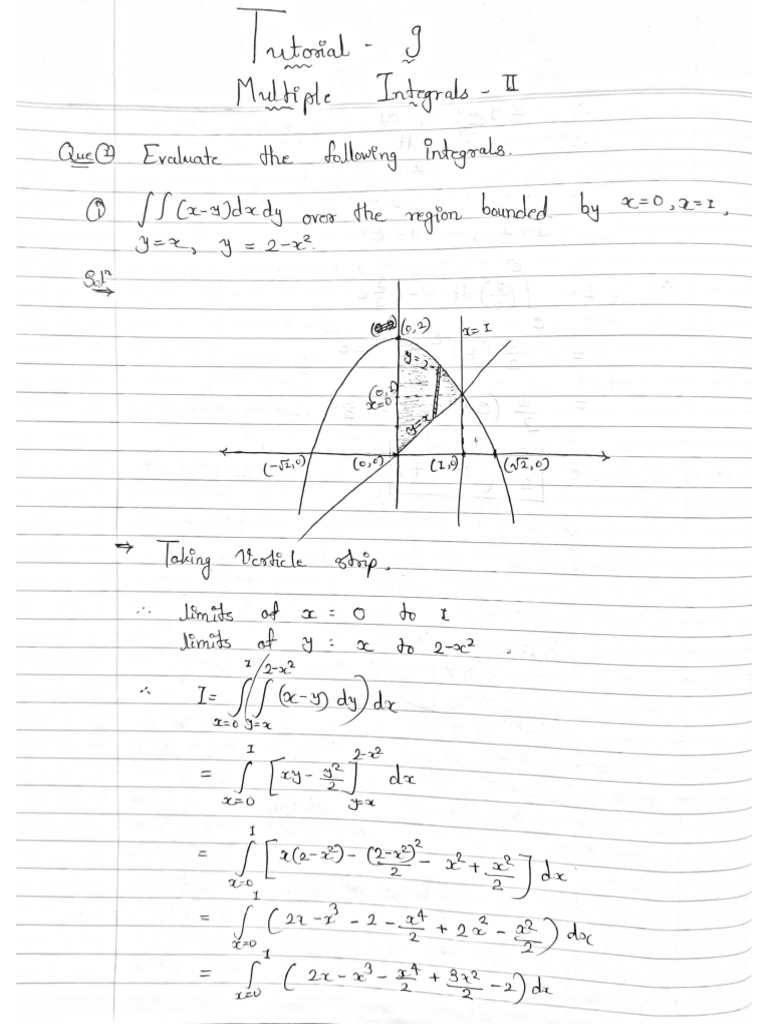 Tutorial - 9
Multiple Integrals - II
Que ① Evaluate the following integrals.
① ∫∫(x-y)dxdy over the region bounded by x=0, x=1,
y=x, y = 2-x².
Solⁿ
(0,2)
x=1
y=2-
(0,1)
x=0
y=x
(-√2,0) (0,0) (1,0) (√2,0)
→ Taking Verticle strip.
∴ limits of x = 0 to 1
limits of y = x to 2-x².
∴ I = ∫_{x=0}^{1} (∫_{y=x}^{2-x²} (x-y) dy) dx
= ∫_{x=0}^{1} [xy - y²/2]_{y=x}^{2-x²} dx
= ∫_{x=0}^{1} [x(2-x²) - (2-x²)²/2 - x² + x²/2] dx
= ∫_{x=0}^{1} (2x - x³ - 2 - x⁴/2 + 2x² - x²/2) dx
= ∫_{x=0}^{1} (2x - x³ - x⁴/2 + 3x²/2 - 2) dx